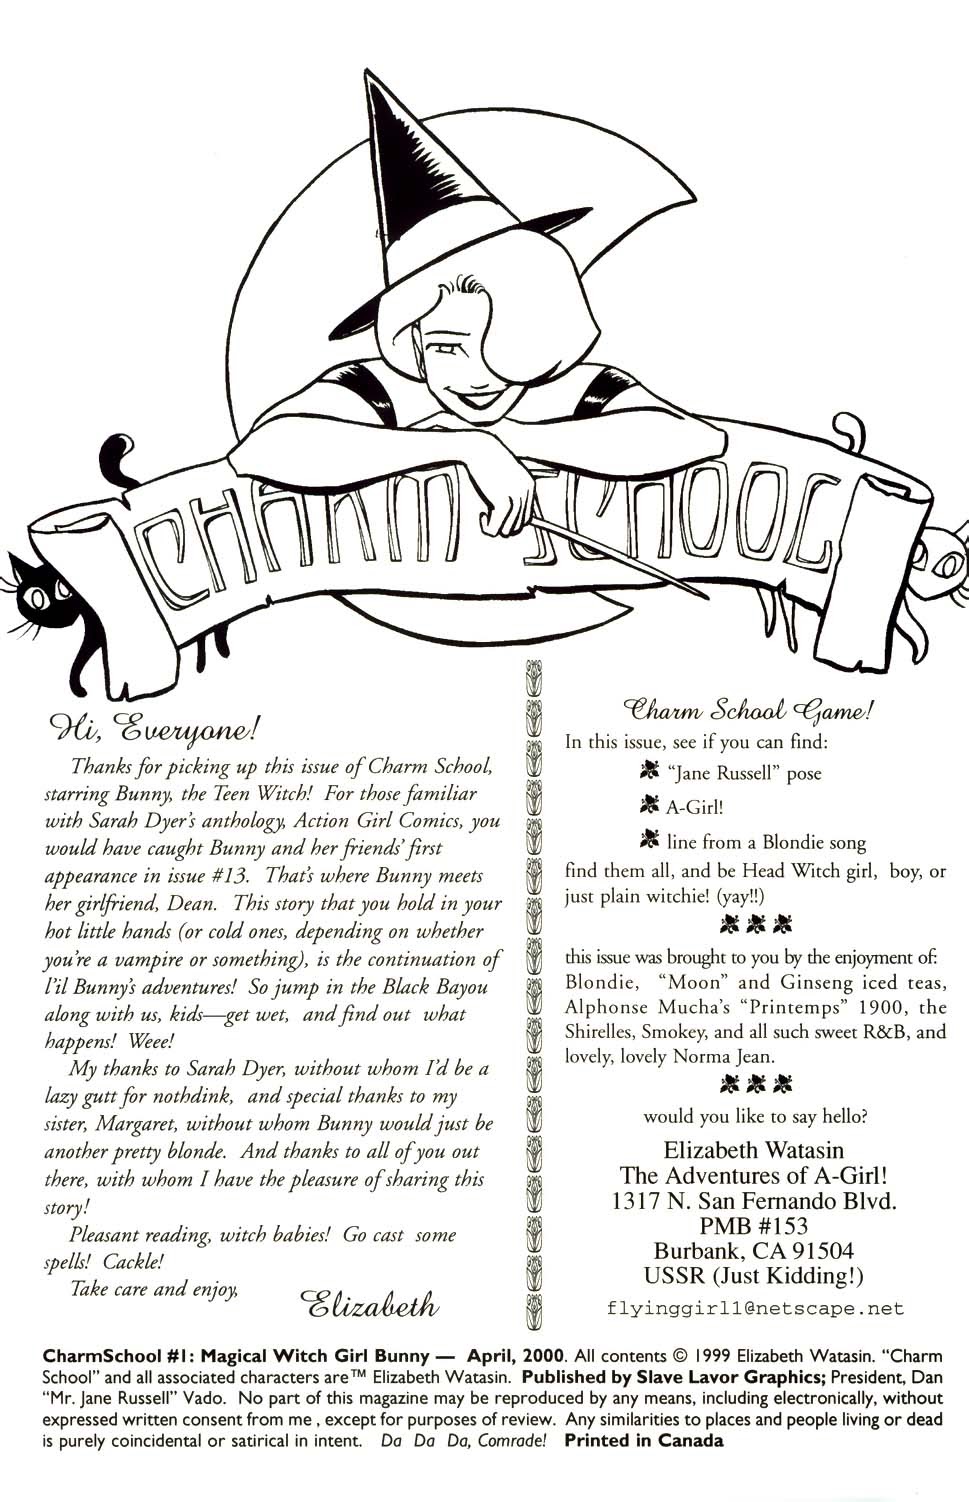 CHARM SCHOOL
Hi, Everyone!
Thanks for picking up this issue of Charm School,
starring Bunny, the Teen Witch! For those familiar
with Sarah Dyer's anthology, Action Girl Comics, you
would have caught Bunny and her friends' first
appearance in issue #13. That's where Bunny meets
her girlfriend, Dean. This story that you hold in your
hot little hands (or cold ones, depending on whether
you're a vampire or something), is the continuation of
l'il Bunny's adventures! So jump in the Black Bayou
along with us, kids—get wet, and find out what
happens! Weee!
My thanks to Sarah Dyer, without whom I'd be a
lazy gutt for nothdink, and special thanks to my
sister, Margaret, without whom Bunny would just be
another pretty blonde. And thanks to all of you out
there, with whom I have the pleasure of sharing this
story!
Pleasant reading, witch babies! Go cast some
spells! Cackle!
Take care and enjoy,
Elizabeth
Charm School Game!
In this issue, see if you can find:
"Jane Russell" pose
A-Girl!
line from a Blondie song
find them all, and be Head Witch girl, boy, or
just plain witchie! (yay!!)
this issue was brought to you by the enjoyment of:
Blondie, "Moon" and Ginseng iced teas,
Alphonse Mucha's "Printemps" 1900, the
Shirelles, Smokey, and all such sweet R&B, and
lovely, lovely Norma Jean.
would you like to say hello?
Elizabeth Watasin
The Adventures of A-Girl!
1317 N. San Fernando Blvd.
PMB #153
Burbank, CA 91504
USSR (Just Kidding!)
flyinggirl1@netscape.net
CharmSchool #1: Magical Witch Girl Bunny — April, 2000. All contents © 1999 Elizabeth Watasin. "Charm
School" and all associated characters are™ Elizabeth Watasin. Published by Slave Lavor Graphics; President, Dan
"Mr. Jane Russell" Vado. No part of this magazine may be reproduced by any means, including electronically, without
expressed written consent from me , except for purposes of review. Any similarities to places and people living or dead
is purely coincidental or satirical in intent. Da Da Da, Comrade! Printed in Canada